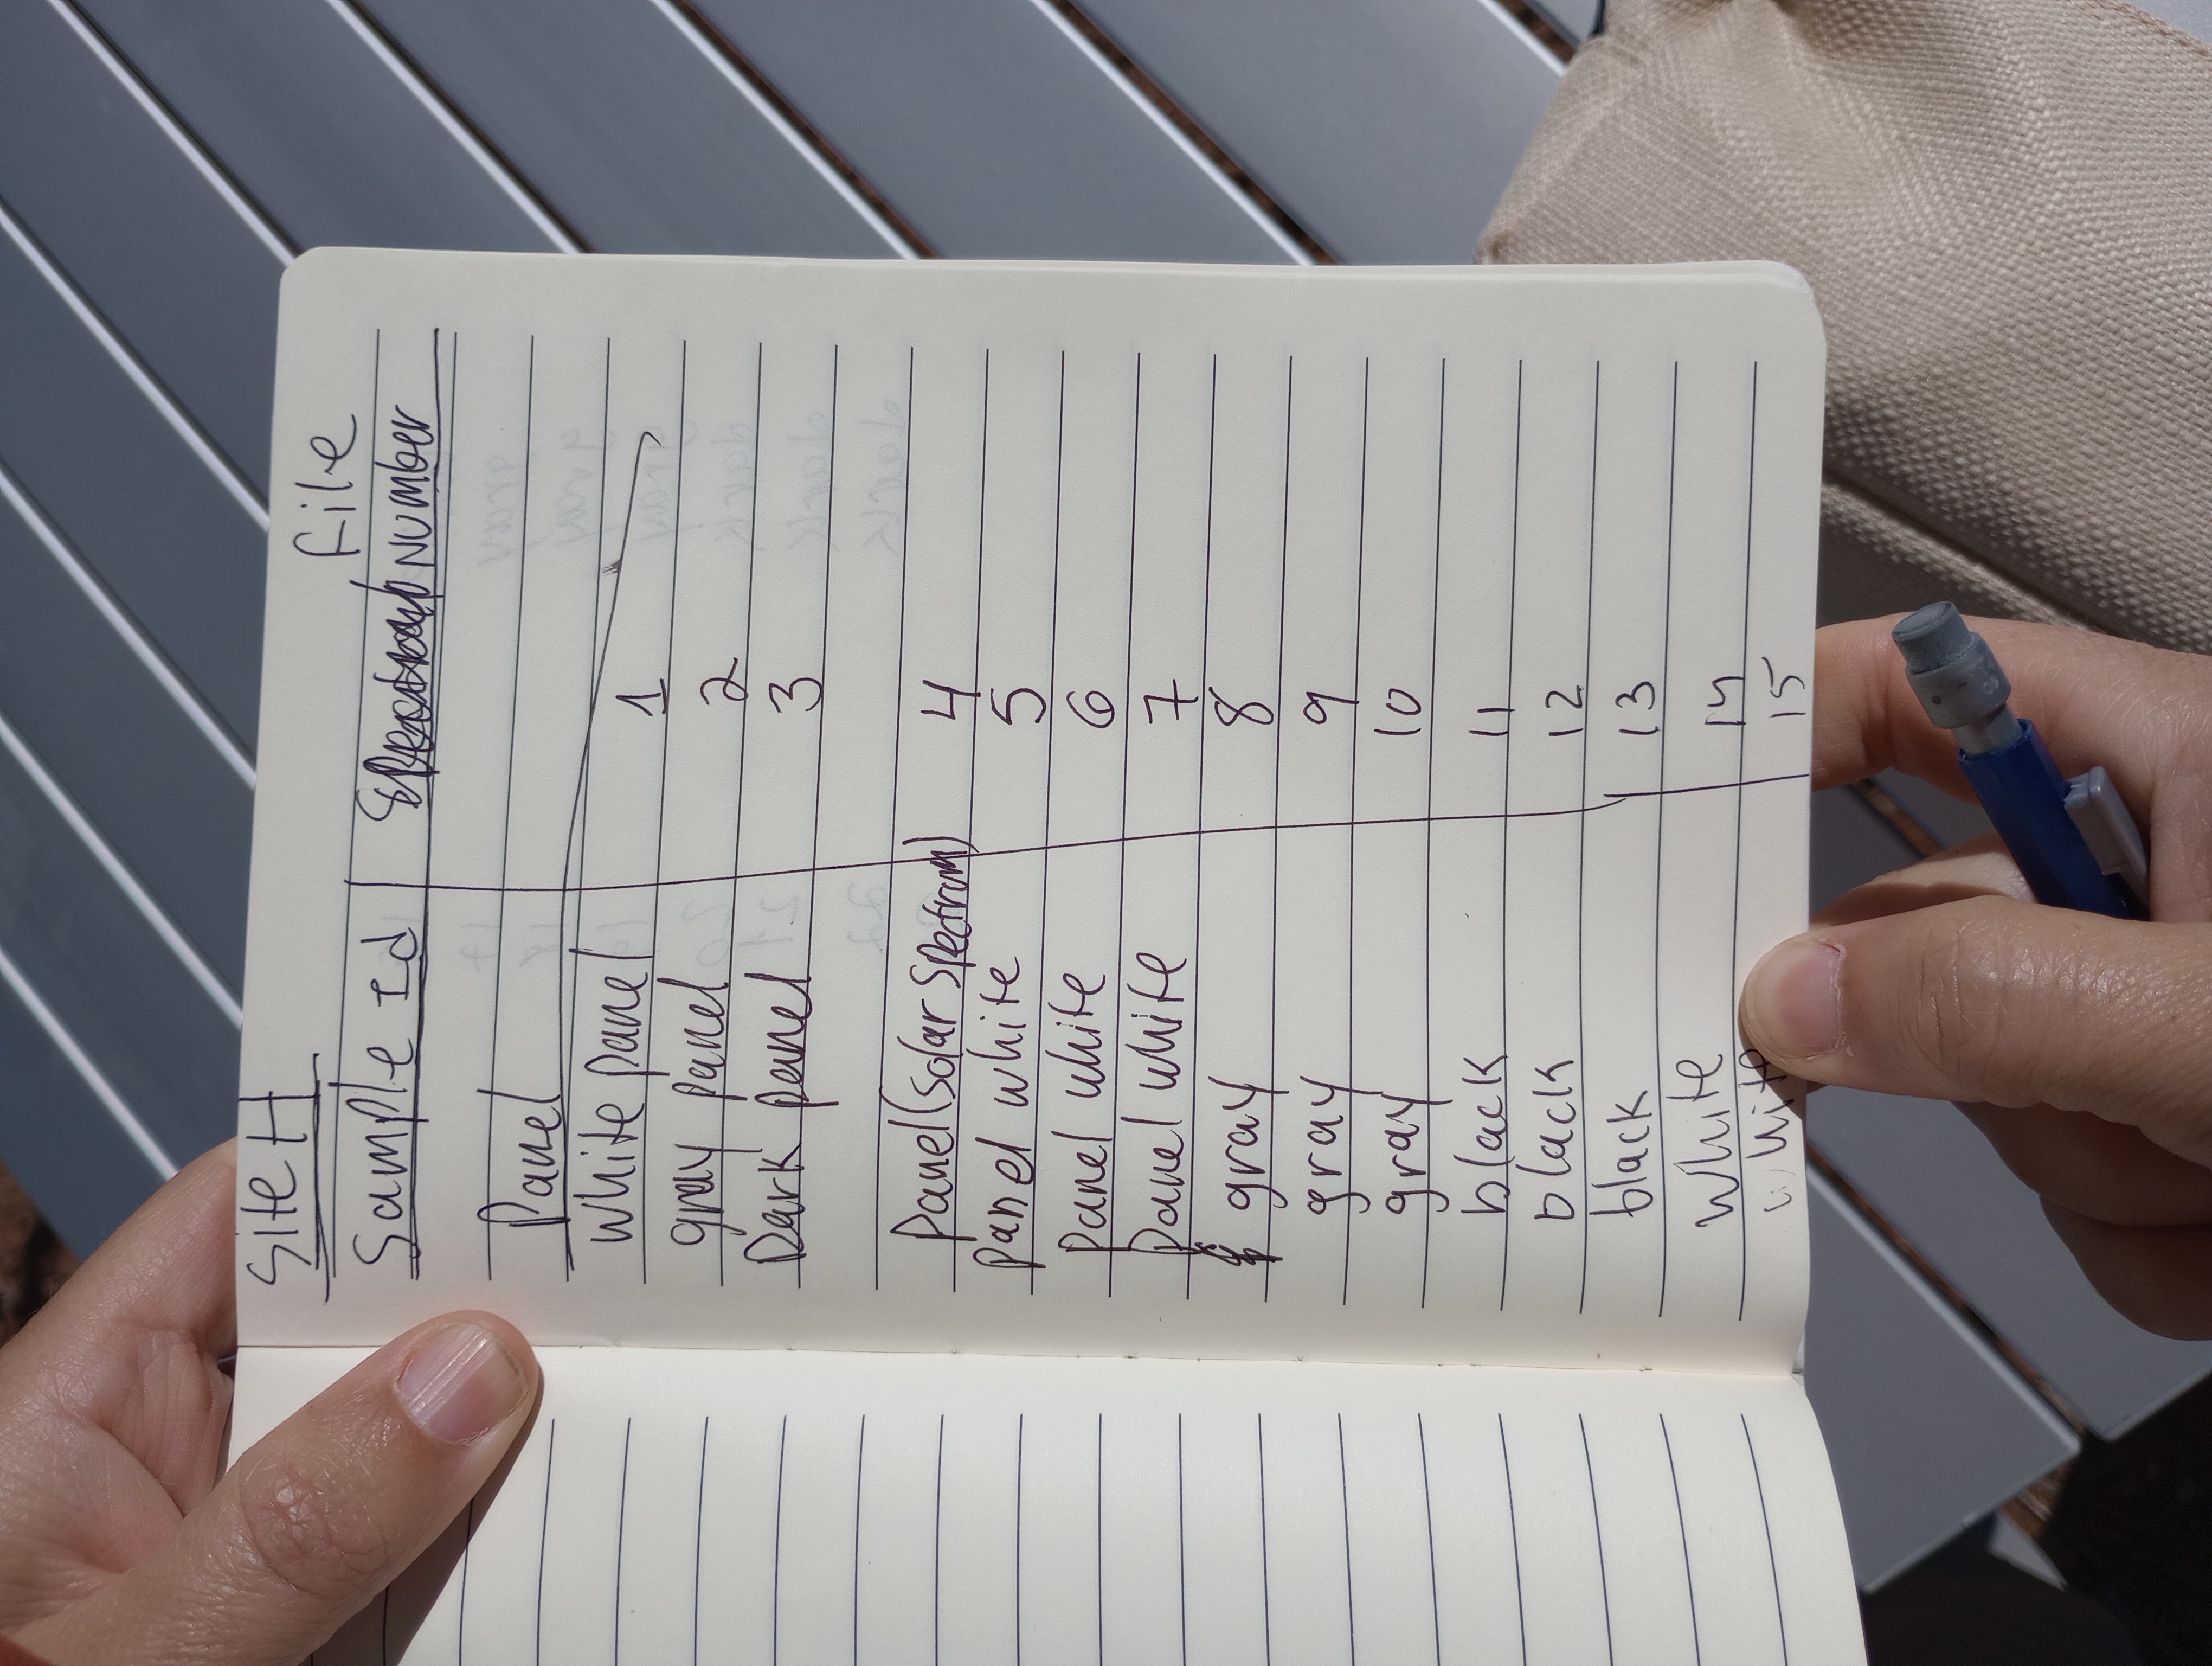 Site H
File
Sample Id Number
Panel
White panel 1
gray panel 2
Dark panel 3
Panel (Solar Spectrum) 4
Panel white 5
Panel white 6
Panel white 7
gray 8
gray 9
gray 10
black 11
black 12
black 13
White 14
White 15